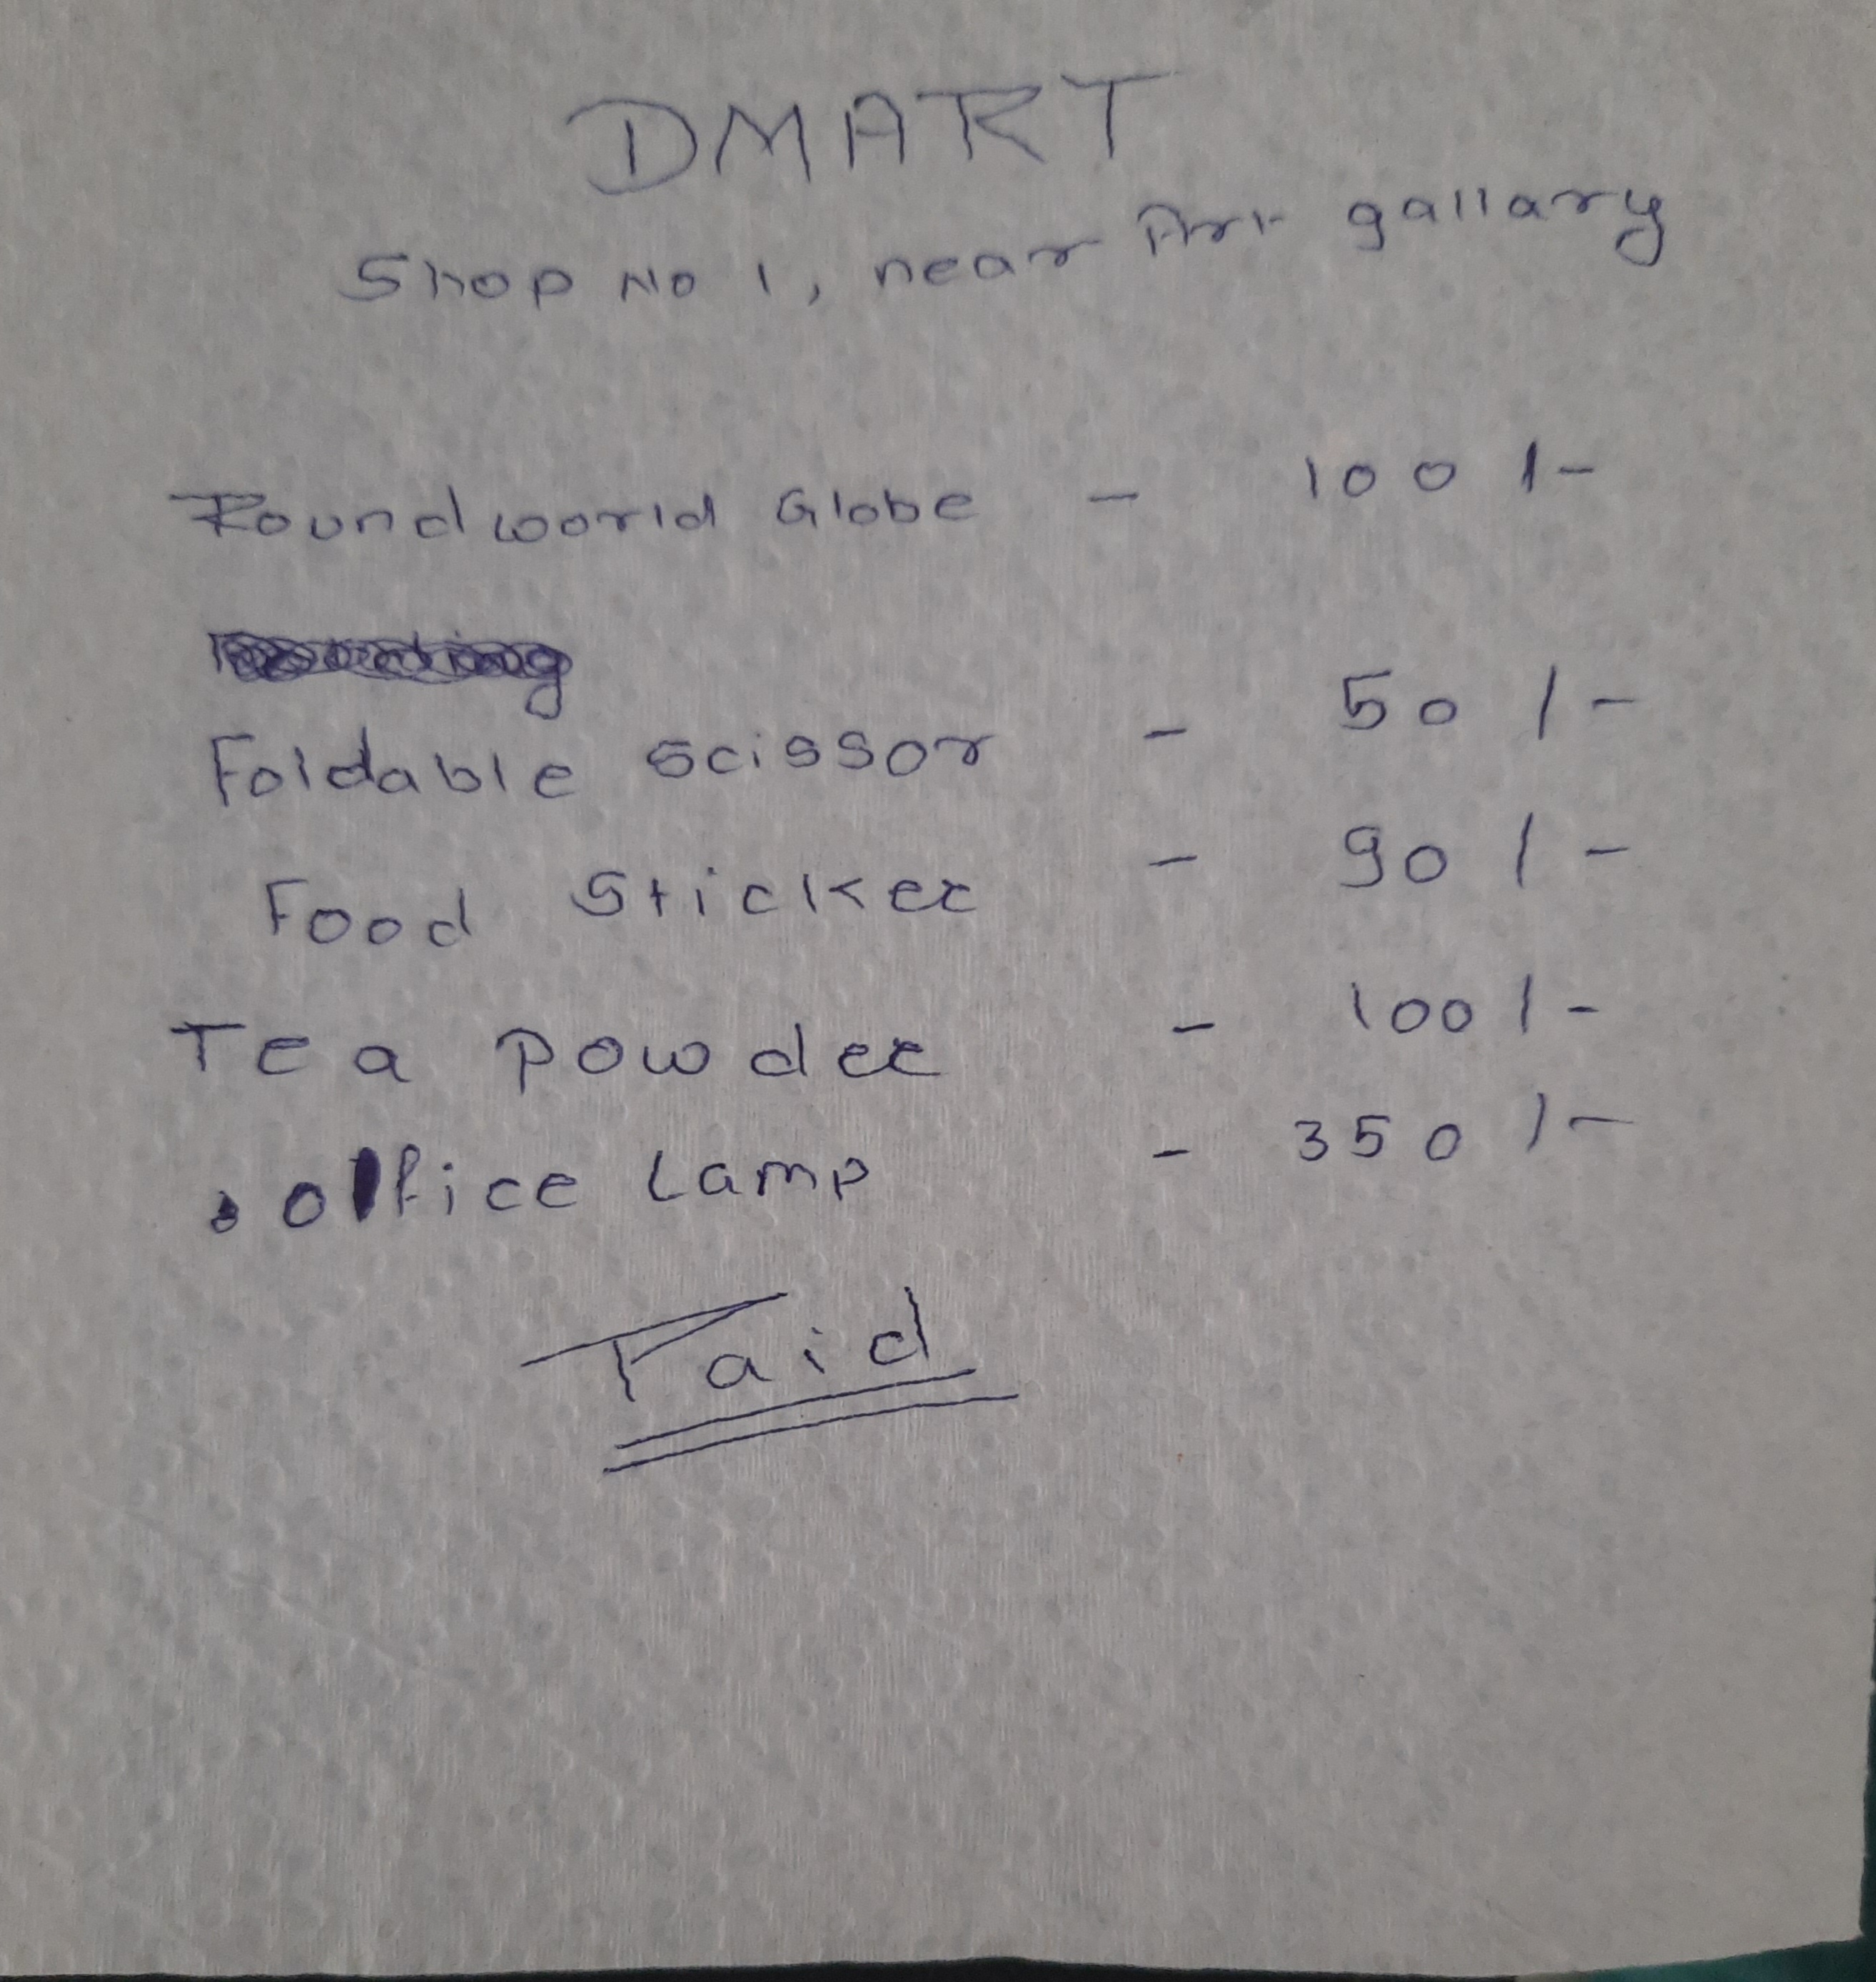 DMART
Shop No 1, near Art gallary
Round world Globe - 100 /-
Foldable scissor - 50 /-
Food Sticker - 90 /-
Tea Powder - 100 /-
office Lamp - 350 /-
Paid